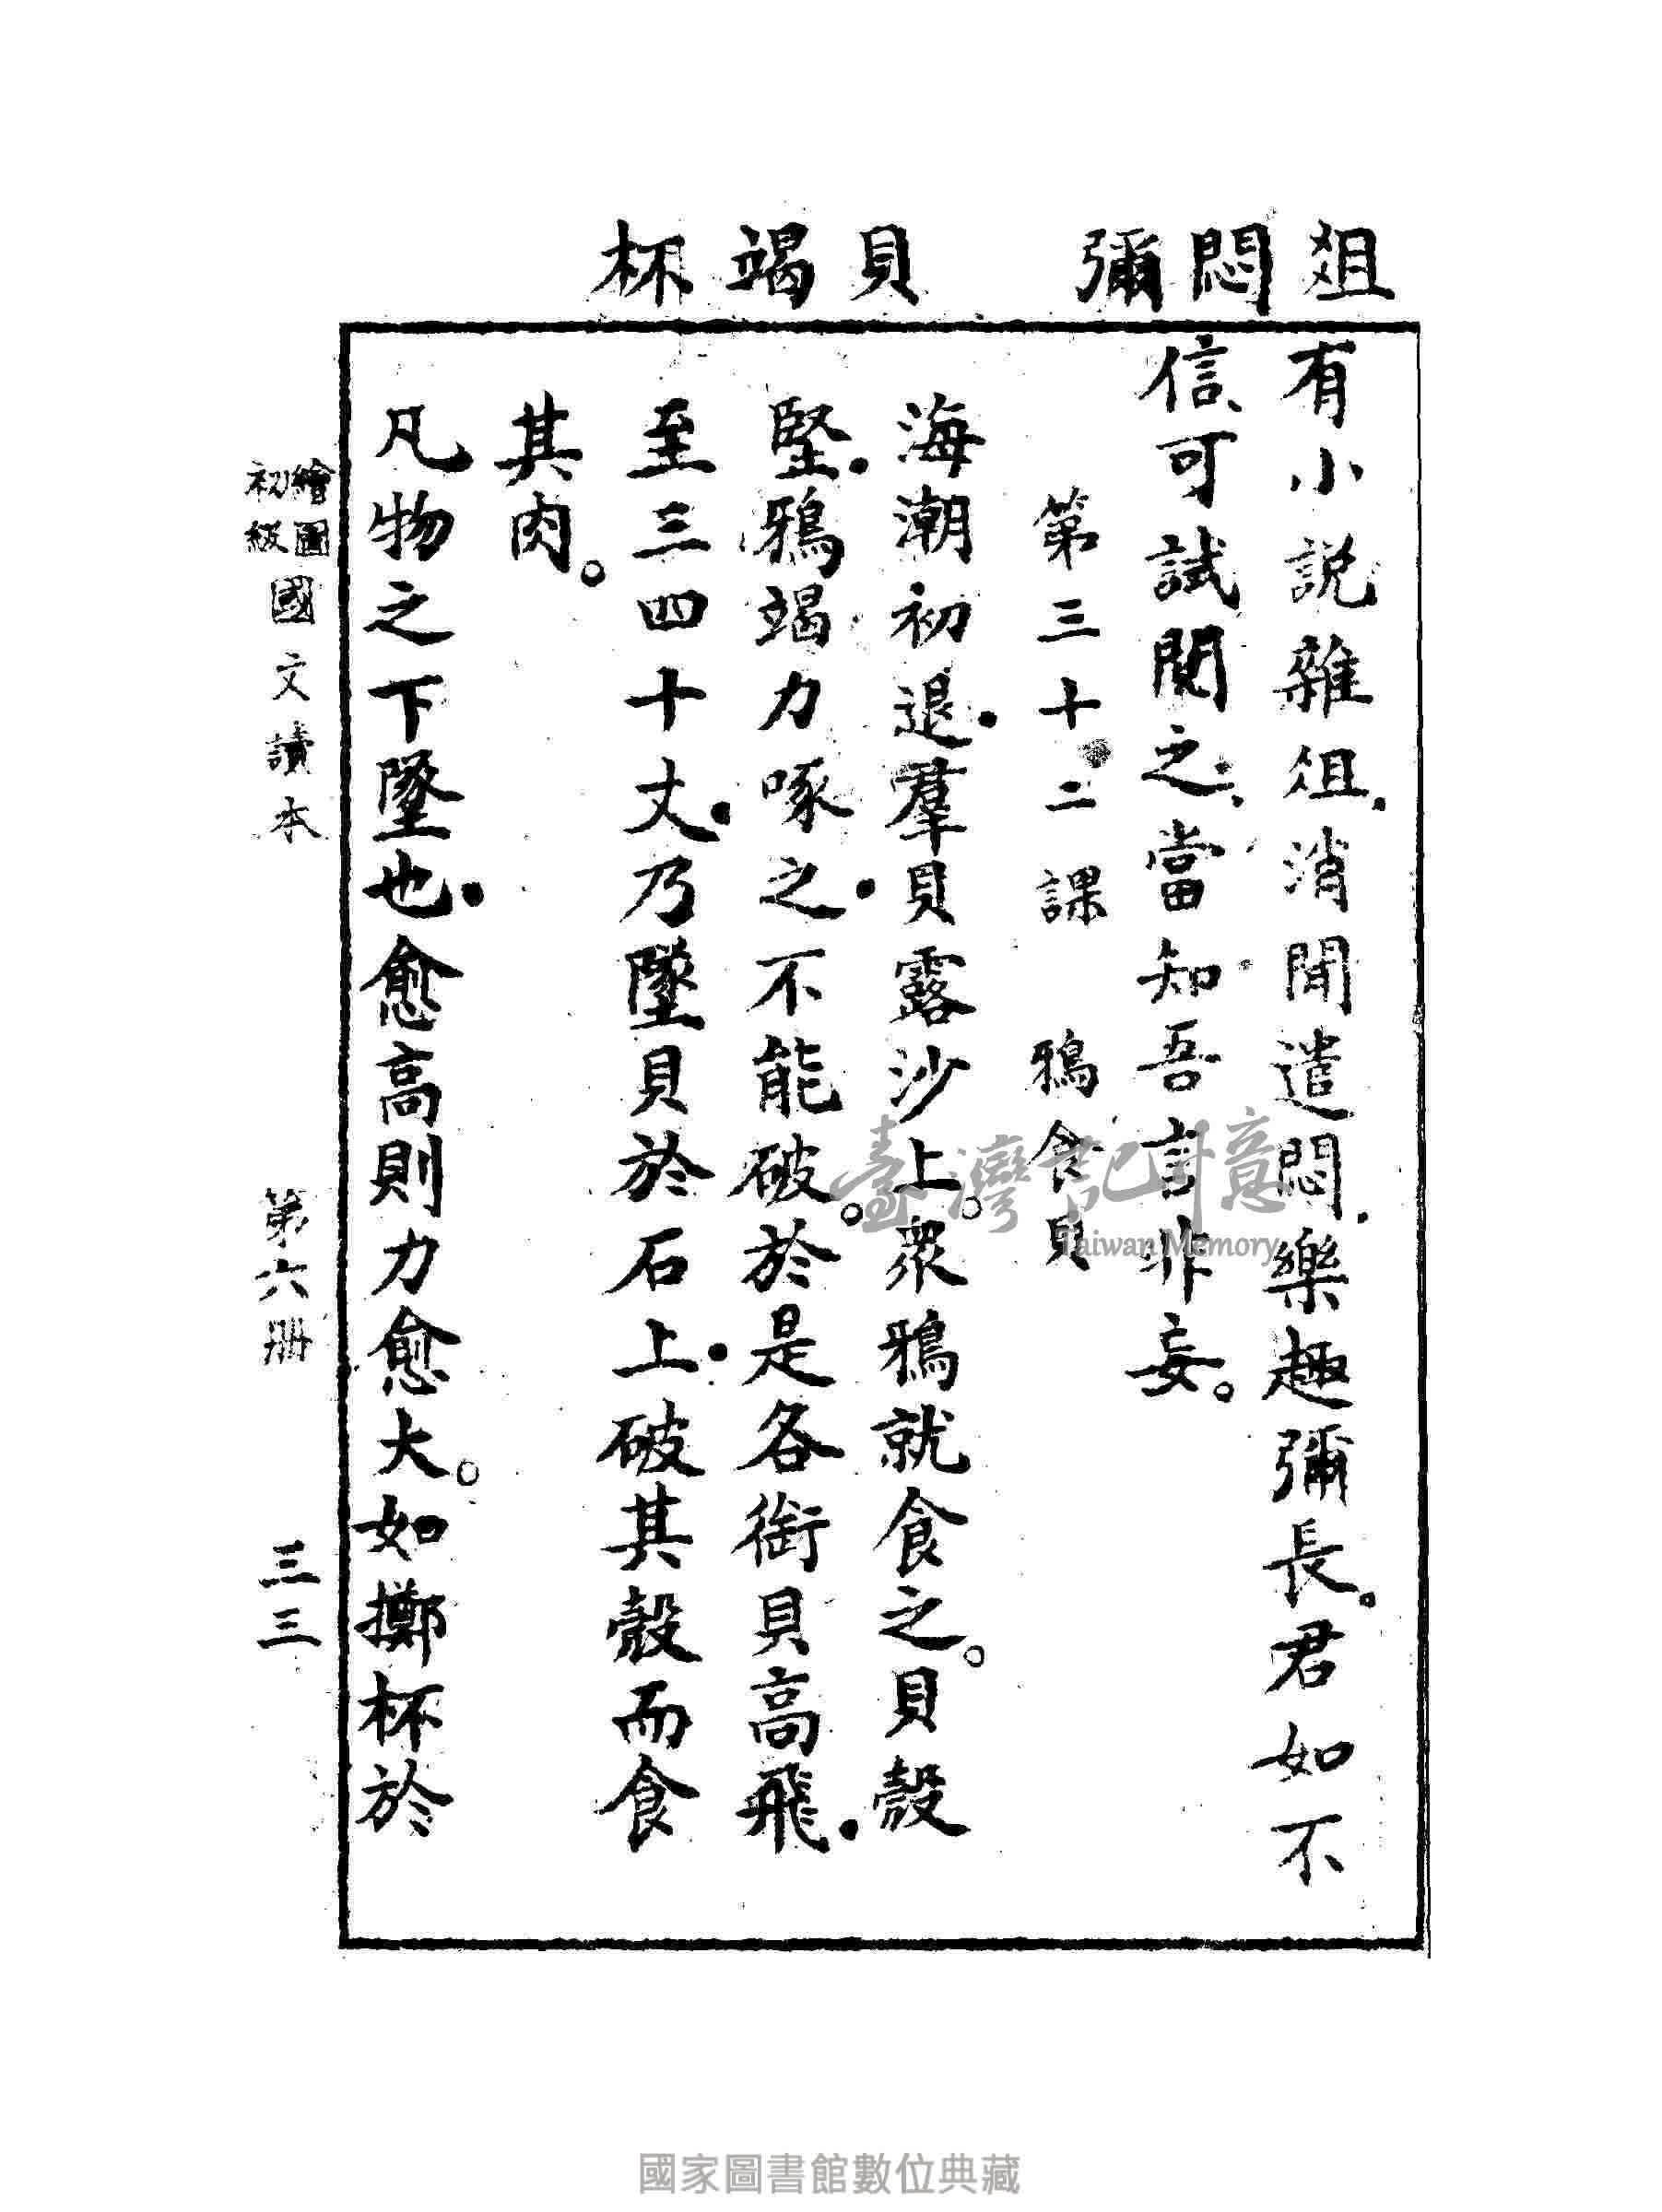 俎 悶 彌 貝 竭 杯
有小説雜俎．消閒遣悶．樂趣彌長。君如不
信、可試閱之、當知吾言非妄。
第三十二課 鴉食貝
海潮初退．羣貝露沙上。衆鴉就食之。貝殼
堅．鴉竭力啄之．不能破。於是各銜貝高飛．
至三四十丈．乃墜貝於石上．破其殼而食
其肉。
凡物之下墜也．愈高則力愈大。如擲杯於
繪圖初級國文讀本 第六册 三三
臺灣記憶
Taiwan Memory
國家圖書館數位典藏